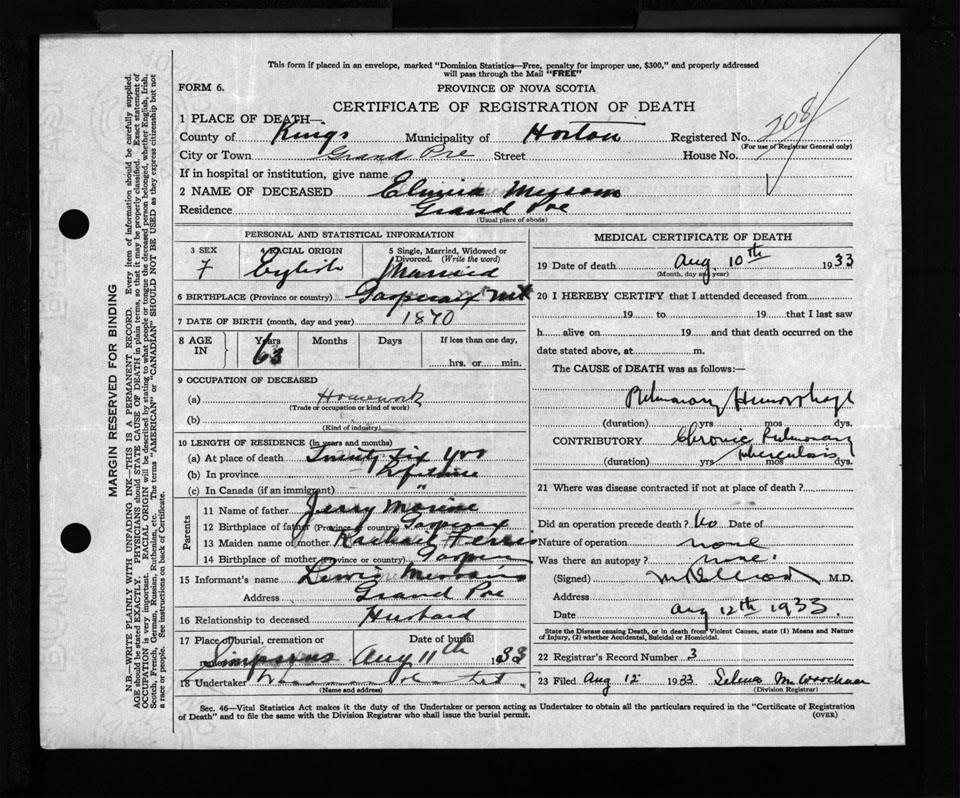 This form if placed in an envelope, marked "Dominion Statistics—Free, penalty for improper use, $300," and properly addressed
will pass through the Mail "FREE"
FORM 6.
PROVINCE OF NOVA SCOTIA
CERTIFICATE OF REGISTRATION OF DEATH
1 PLACE OF DEATH—
County of Kings Municipality of Horton Registered No. 208
(For use of Registrar General only)
City or Town Grand Pre Street House No.
If in hospital or institution, give name
2 NAME OF DECEASED
Residence Grand Pre
(Usual place of abode)
PERSONAL AND STATISTICAL INFORMATION
3 SEX 4 RACIAL ORIGIN 5 Single, Married, Widowed or
Divorced. (Write the word)
F English Married
6 BIRTHPLACE (Province or country) Gasperaux Mt
7 DATE OF BIRTH (month, day and year) 1870
8 AGE IN Years Months Days If less than one day,
63 hrs. or min.
9 OCCUPATION OF DECEASED
(a) Housework
(Trade or occupation or kind of work)
(b)
(Kind of industry)
10 LENGTH OF RESIDENCE (in years and months)
(a) At place of death Twenty six yrs
(b) In province Lifetime
(c) In Canada (if an immigrant) "
Parents
11 Name of father Jerry
12 Birthplace of father (Province or country) Gasperax
13 Maiden name of mother Rachael Ferris
14 Birthplace of mother (Province or country)
15 Informant's name
Address Grand Pre
16 Relationship to deceased Husband
17 Place of burial, cremation or Date of burial
Simpsons Aug 11th 1933
18 Undertaker
(Name and address)
MEDICAL CERTIFICATE OF DEATH
19 Date of death Aug 10th 1933
(Month, day and year)
20 I HEREBY CERTIFY that I attended deceased from
19 to 19 that I last saw
h alive on 19 and that death occurred on
date stated above, at m.
The CAUSE of DEATH was as follows:—
Pulmonary Hemorrhage
(duration) yrs mos dys.
CONTRIBUTORY Chronic Pulmonary
tuberculosis
(duration) yrs mos dys.
21 Where was disease contracted if not at place of death?
Did an operation precede death? No Date of
Nature of operation none
Was there an autopsy? none
(Signed) M.D.
Address
Date Aug 12th 1933.
State the Disease causing Death, or in death from Violent Causes, state (1) Means and Nature
of Injury, (2) whether Accidental, Suicidal or Homicidal.
22 Registrar's Record Number 3
23 Filed Aug 12 1933
(Division Registrar)
Sec. 46—Vital Statistics Act makes it the duty of the Undertaker or person acting as Undertaker to obtain all the particulars required in the "Certificate of Registration
of Death" and to file the same with the Division Registrar who shall issue the burial permit.
(OVER)
MARGIN RESERVED FOR BINDING
N.B.—WRITE PLAINLY WITH UNFADING INK—THIS IS A PERMANENT RECORD. Every item of information should be carefully supplied.
AGE should be stated EXACTLY. PHYSICIANS should STATE CAUSE OF DEATH in plain terms, so that it may be properly classified. Exact statement of
OCCUPATION is very important. RACIAL ORIGIN will be described by stating to what people or tongue the deceased person belonged, whether English, Irish,
Scotch, French, German, Russian, Ruthenian, etc. The terms "AMERICAN" or "CANADIAN" SHOULD NOT BE USED as they express citizenship but not
a race or people. See instructions on back of Certificate.